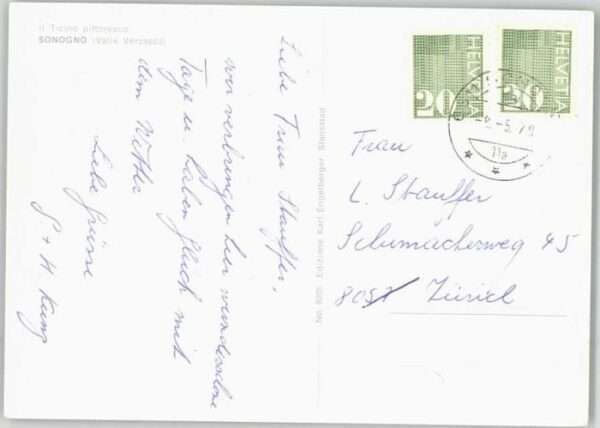 Il Ticino pittoresco
SONOGNO (Valle Verzasca)
Liebe Frau Stauffer,
wir verbringen hier wunderschöne
Tage u. haben Glück mit
dem Wetter
Liebe Grüsse
S + H. Kung
No. 8051 Edizione Karl Engelberger, Stansstad
HELVETIA
20
HELVETIA
20
-5.79
11a
Frau
L. Stauffer
Schumacherweg 45
8051 Zürich